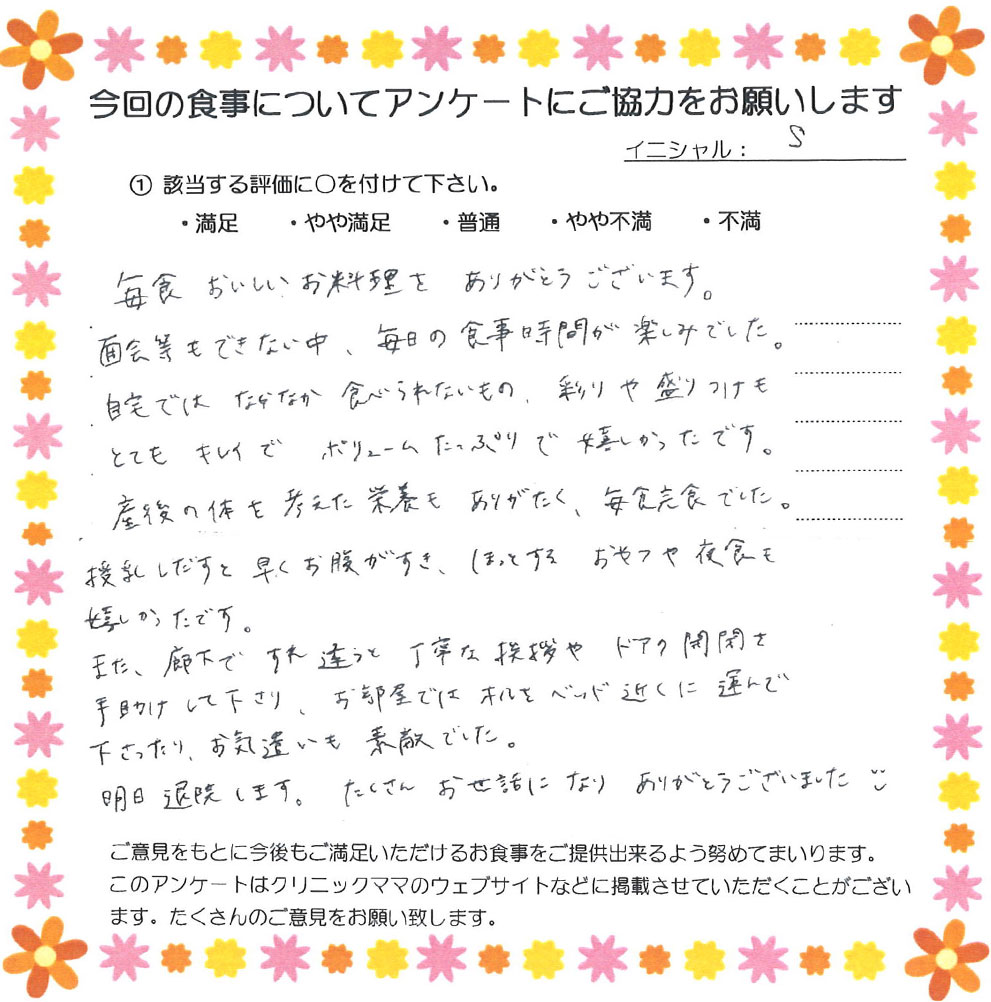 今回の食事についてアンケートにご協力をお願いします
イニシャル: S
① 該当する評価に○を付けて下さい。
・満足 ・やや満足 ・普通 ・やや不満 ・不満
毎食 おいしいお料理を ありがとうございます。
面会等もできない中、毎日の食事時間が楽しみでした。
自宅では なかなか 食べられないもの、彩りや盛りつけも
とても キレイで ボリュームたっぷりで 嬉しかったです。
産後の体を考えた栄養も ありがたく、毎食完食でした。
授乳しだすと早くお腹がすき、ほっとする おやつや夜食も
嬉しかったです。
また、廊下で すれ違うと 丁寧な挨拶や ドアの開閉を
手助けして下さり、お部屋では オルをベッド近くに運んで
下さったり、お気遣いも 素敵でした。
明日退院します。 たくさん お世話になり ありがとうございました
ご意見をもとに今後もご満足いただけるお食事をご提供出来るよう努めてまいります。
このアンケートはクリニックママのウェブサイトなどに掲載させていただくことがござい
ます。たくさんのご意見をお願い致します。